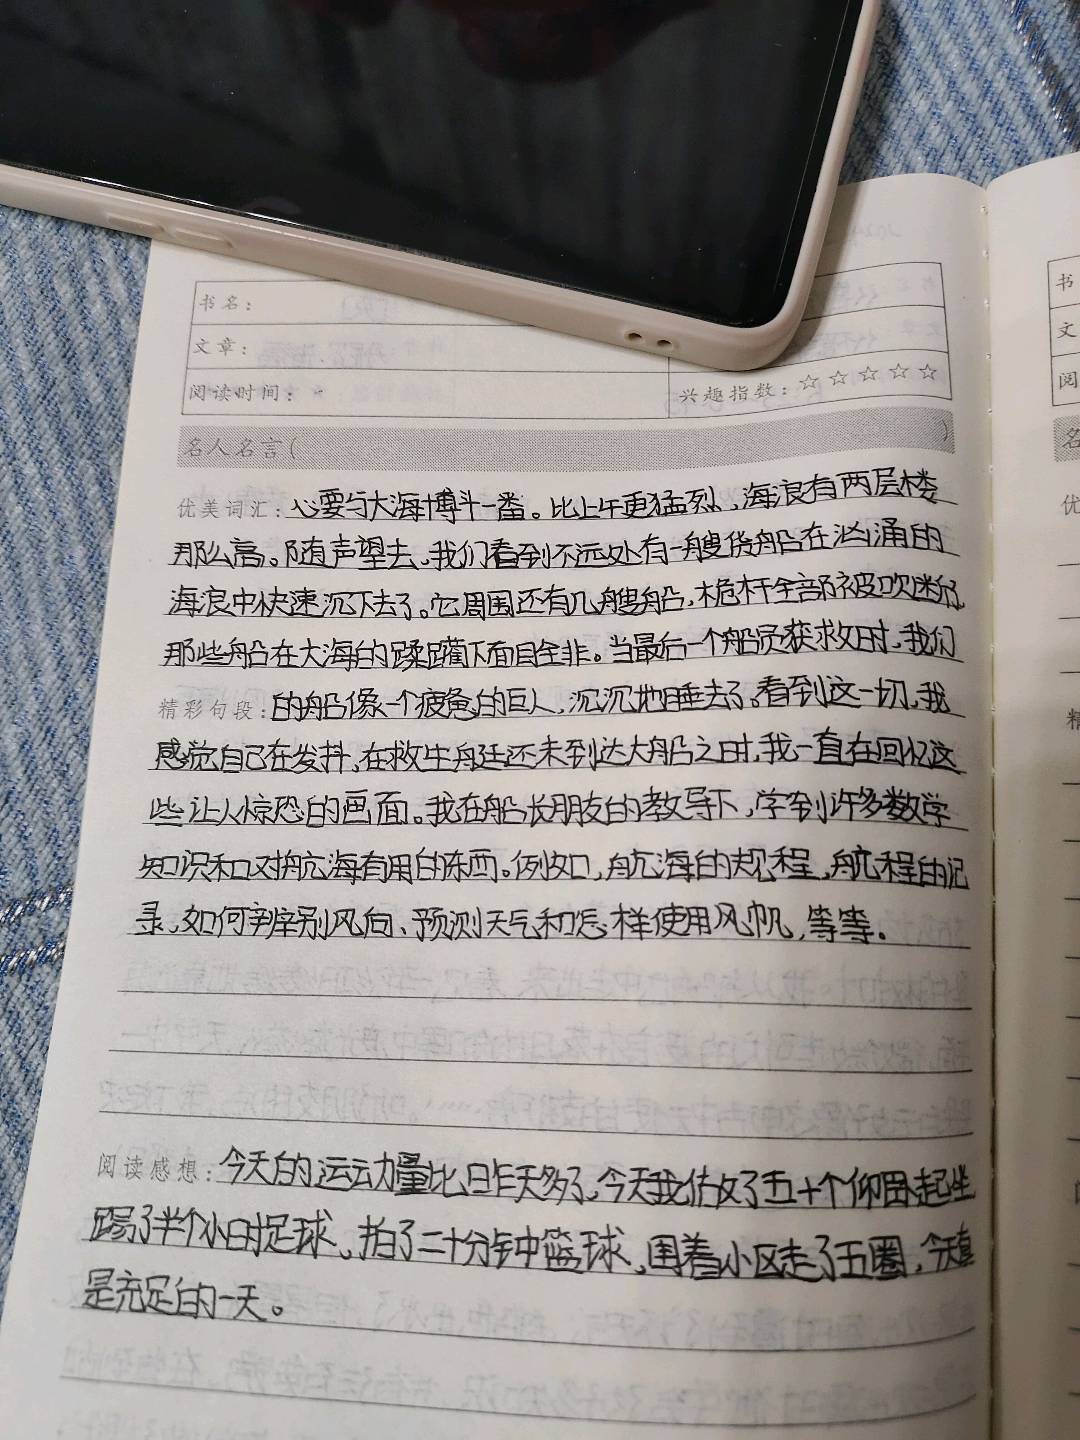 书名：
文章：
阅读时间：
兴趣指数：☆☆☆☆☆
名人名言（ ）
优美词汇：心要与大海博斗一番。比上午更猛烈，海浪有两层楼
那么高。随声望去，我们看到不远处有一艘货船在汹涌的
海浪中快速沉下去了。它周围还有几艘船，桅杆全部被吹断，
那些船在大海的蹂躏下面目全非。当最后一个船员获救时，我们
精彩句段：的船像一个疲惫的巨人，沉沉地睡去了。看到这一切，我
感觉自己在发抖，在救生舟廷还未到达大船之时，我一直在回忆这
些让人惊恐的画面。我在船长朋友的教导下，学到许多数学
知识和对航海有用的东西。例如，航海的规程，航程的记
录，如何辨别风向、预测天气和怎样使用风帆，等等。
阅读感想：今天的运动量比昨天多了，今天我做了五十个仰卧起坐
踢了半个小时足球，拍了二十分钟篮球，围着小区走了五圈，今天真
是充足的一天。
书
文
阅
名
优